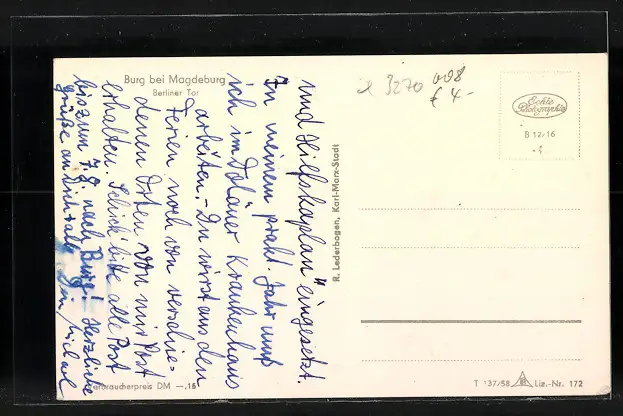 Burg bei Magdeburg
Berliner Tor
und Hilfskaplan" eingesetzt.
In meinem prakt. Jahr muß
ich im Dölauer Krankenhaus
arbeiten. - Du wirst aus den
Ferien noch von verschie=
denen Orten von mir Post
erhalten. Schick bitte alle Post
bis zum 7.9. nach Burg! Herzliche
Grüße an Dich + alle Dein Michael
R. Lederbogen, Karl-Marx-Stadt
3270 008
€ 4-
Echte
Photographie
B 12/16
Verbraucherpreis DM -,15
T 137/58 Liz.-Nr. 172